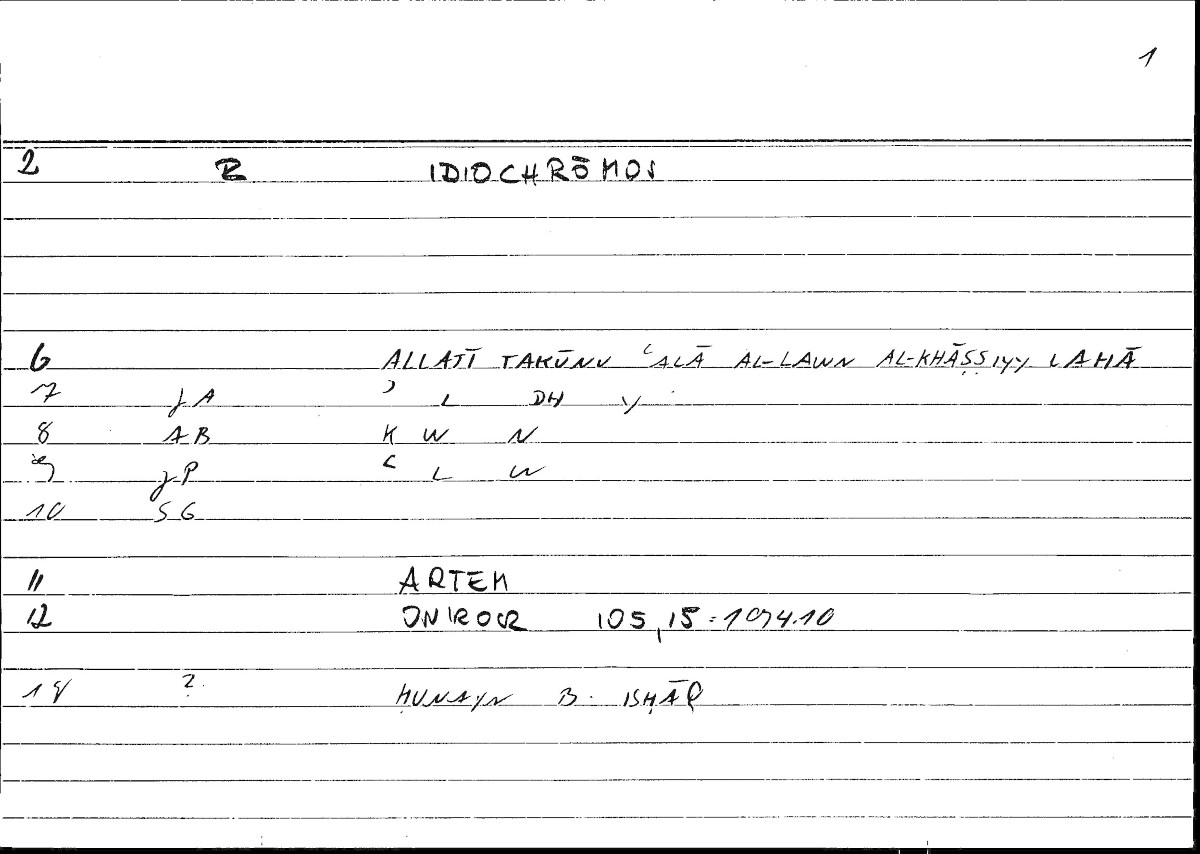 1
2 R IDIOCHRŌMOS
6 ALLATĪ TAKŪNU ʿALĀ AL-LAWN AL-KHĀṢṢIYY LAHĀ
7 JA ʾ L DH Y
8 AB K W N
9 JP ʿ L W
10 SG
11 ARTEM
12 ONIROCR 105,15 = 194.10
18 2. ḤUNAYN B. ISḤĀQ